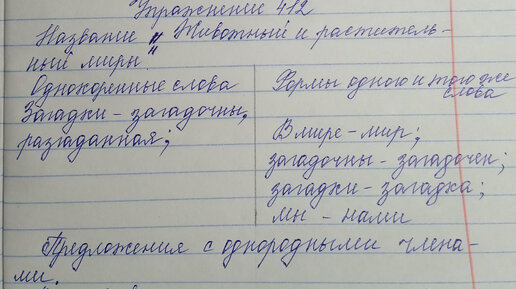 Упражнение 412
Название „Животный и раститель-
ный миры"
Однокоренные слова
Загадки - загадочны,
разгаданная;
Формы одного и того же
слова
В мире - мир;
загадочны - загадочен;
загадки - загадка;
мы - нами
Предложения с однородными члена-
ми.